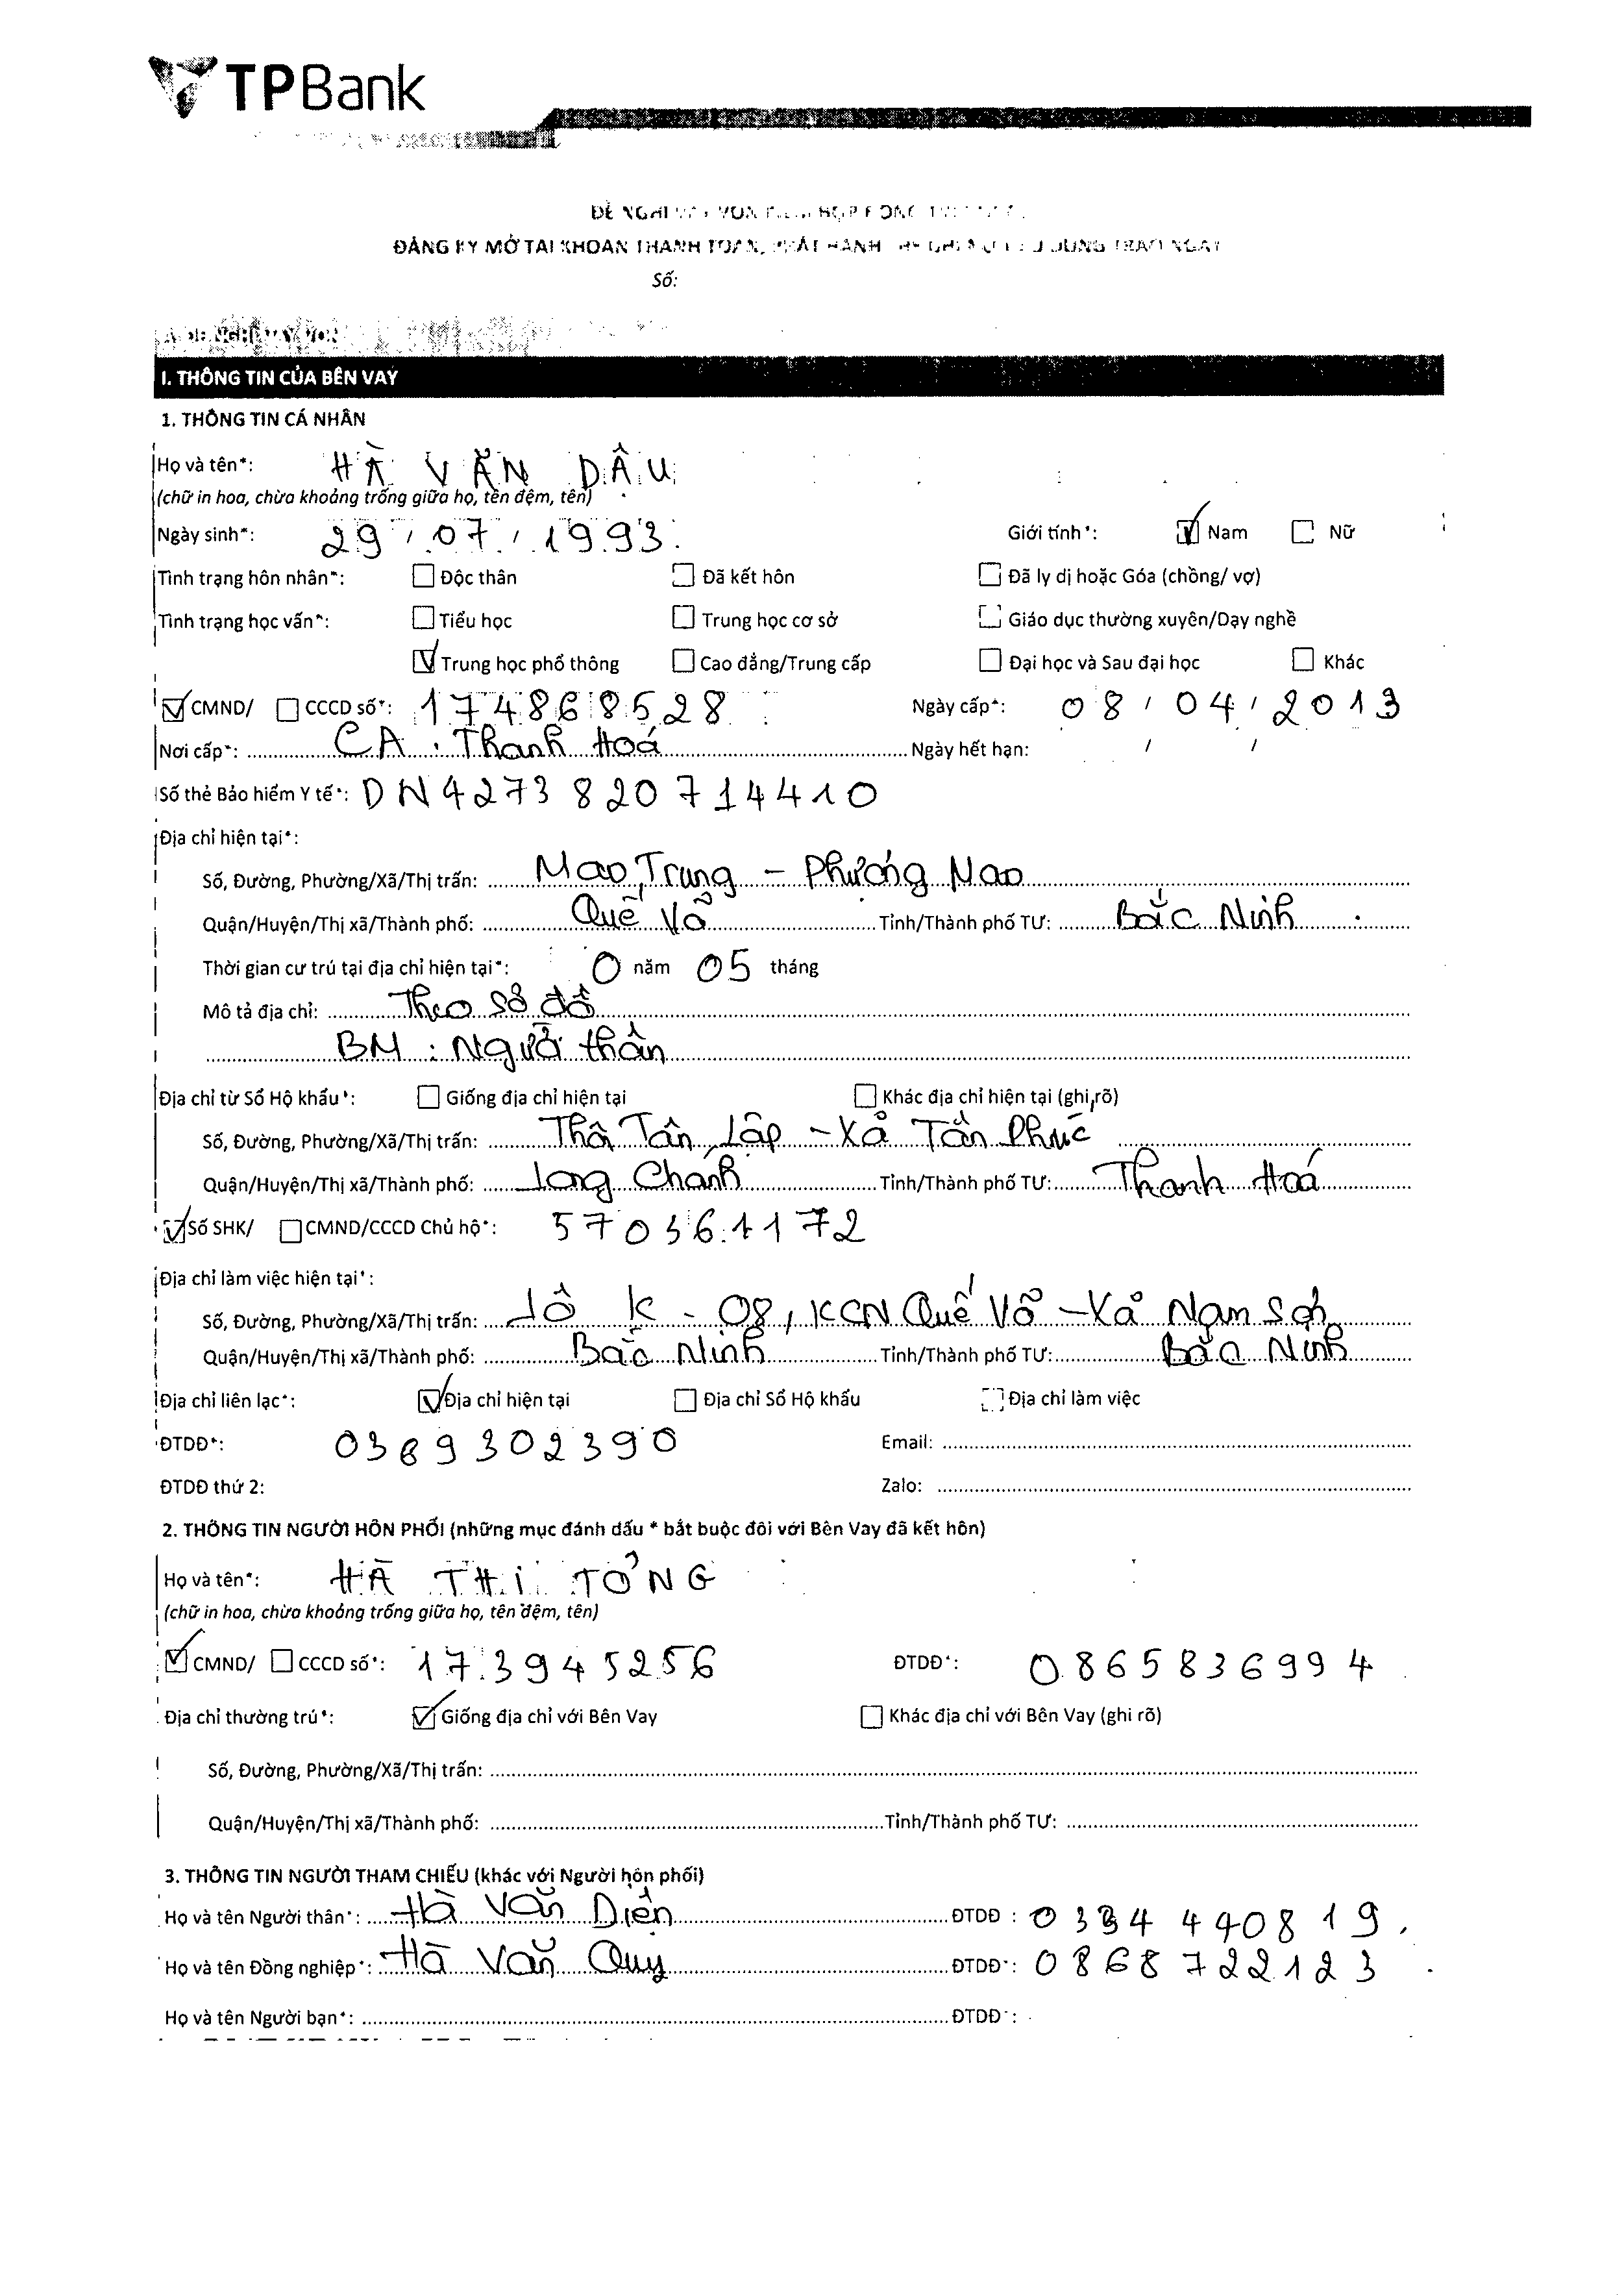 TPBank
ĐỀ NGHỊ VAY VỐN KIÊM HỢP ĐỒNG
ĐĂNG KÝ MỞ TÀI KHOẢN THANH TOÁN, PHÁT HÀNH THẺ GHI NỢ
Số:
A. ĐỀ NGHỊ VAY VỐN
I. THÔNG TIN CỦA BÊN VAY
1. THÔNG TIN CÁ NHÂN
Họ và tên*: HÀ VĂN DẬU
(chữ in hoa, chừa khoảng trống giữa họ, tên đệm, tên)
Ngày sinh*: 29 / 07 / 1993 Giới tính*: Nam Nữ
Tình trạng hôn nhân*: Độc thân Đã kết hôn Đã ly dị hoặc Góa (chồng/ vợ)
Tình trạng học vấn*: Tiểu học Trung học cơ sở Giáo dục thường xuyên/Dạy nghề
Trung học phổ thông Cao đẳng/Trung cấp Đại học và Sau đại học Khác
CMND/ CCCD số*: 174868528 Ngày cấp*: 08 / 04 / 2013
Nơi cấp*: CA : Thanh Hoá Ngày hết hạn: / /
Số thẻ Bảo hiểm Y tế*: DN4273820714410
Địa chỉ hiện tại*:
Số, Đường, Phường/Xã/Thị trấn: Mao Trung - Phượng Mao
Quận/Huyện/Thị xã/Thành phố: Quế Võ Tỉnh/Thành phố TƯ: Bắc Ninh
Thời gian cư trú tại địa chỉ hiện tại*: 0 năm 05 tháng
Mô tả địa chỉ: Theo sơ đồ
BM : Người thân
Địa chỉ từ Sổ Hộ khẩu*: Giống địa chỉ hiện tại Khác địa chỉ hiện tại (ghi rõ)
Số, Đường, Phường/Xã/Thị trấn: Thô Tân Lập - Xã Tân Phúc
Quận/Huyện/Thị xã/Thành phố: Lang Chánh Tỉnh/Thành phố TƯ: Thanh Hoá
Số SHK/ CMND/CCCD Chủ hộ*: 570361172
Địa chỉ làm việc hiện tại*:
Số, Đường, Phường/Xã/Thị trấn: Lô K - 08, KCN Quế Võ - Xã Nam Sơn
Quận/Huyện/Thị xã/Thành phố: Bắc Ninh Tỉnh/Thành phố TƯ: Bắc Ninh
Địa chỉ liên lạc*: Địa chỉ hiện tại Địa chỉ Sổ Hộ khẩu Địa chỉ làm việc
ĐTDĐ*: 0369302390 Email:
ĐTDĐ thứ 2: Zalo:
2. THÔNG TIN NGƯỜI HÔN PHỐI (những mục đánh dấu * bắt buộc đối với Bên Vay đã kết hôn)
Họ và tên*: HÀ THỊ TỎNG
(chữ in hoa, chừa khoảng trống giữa họ, tên đệm, tên)
CMND/ CCCD số*: 173945256 ĐTDĐ*: 0865836994
Địa chỉ thường trú*: Giống địa chỉ với Bên Vay Khác địa chỉ với Bên Vay (ghi rõ)
Số, Đường, Phường/Xã/Thị trấn:
Quận/Huyện/Thị xã/Thành phố: Tỉnh/Thành phố TƯ:
3. THÔNG TIN NGƯỜI THAM CHIẾU (khác với Người hôn phối)
Họ và tên Người thân*: Hà Văn Diện ĐTDĐ : 0334440819
Họ và tên Đồng nghiệp*: Hà Văn Quy ĐTDĐ*: 0868722123
Họ và tên Người bạn*: ĐTDĐ*: